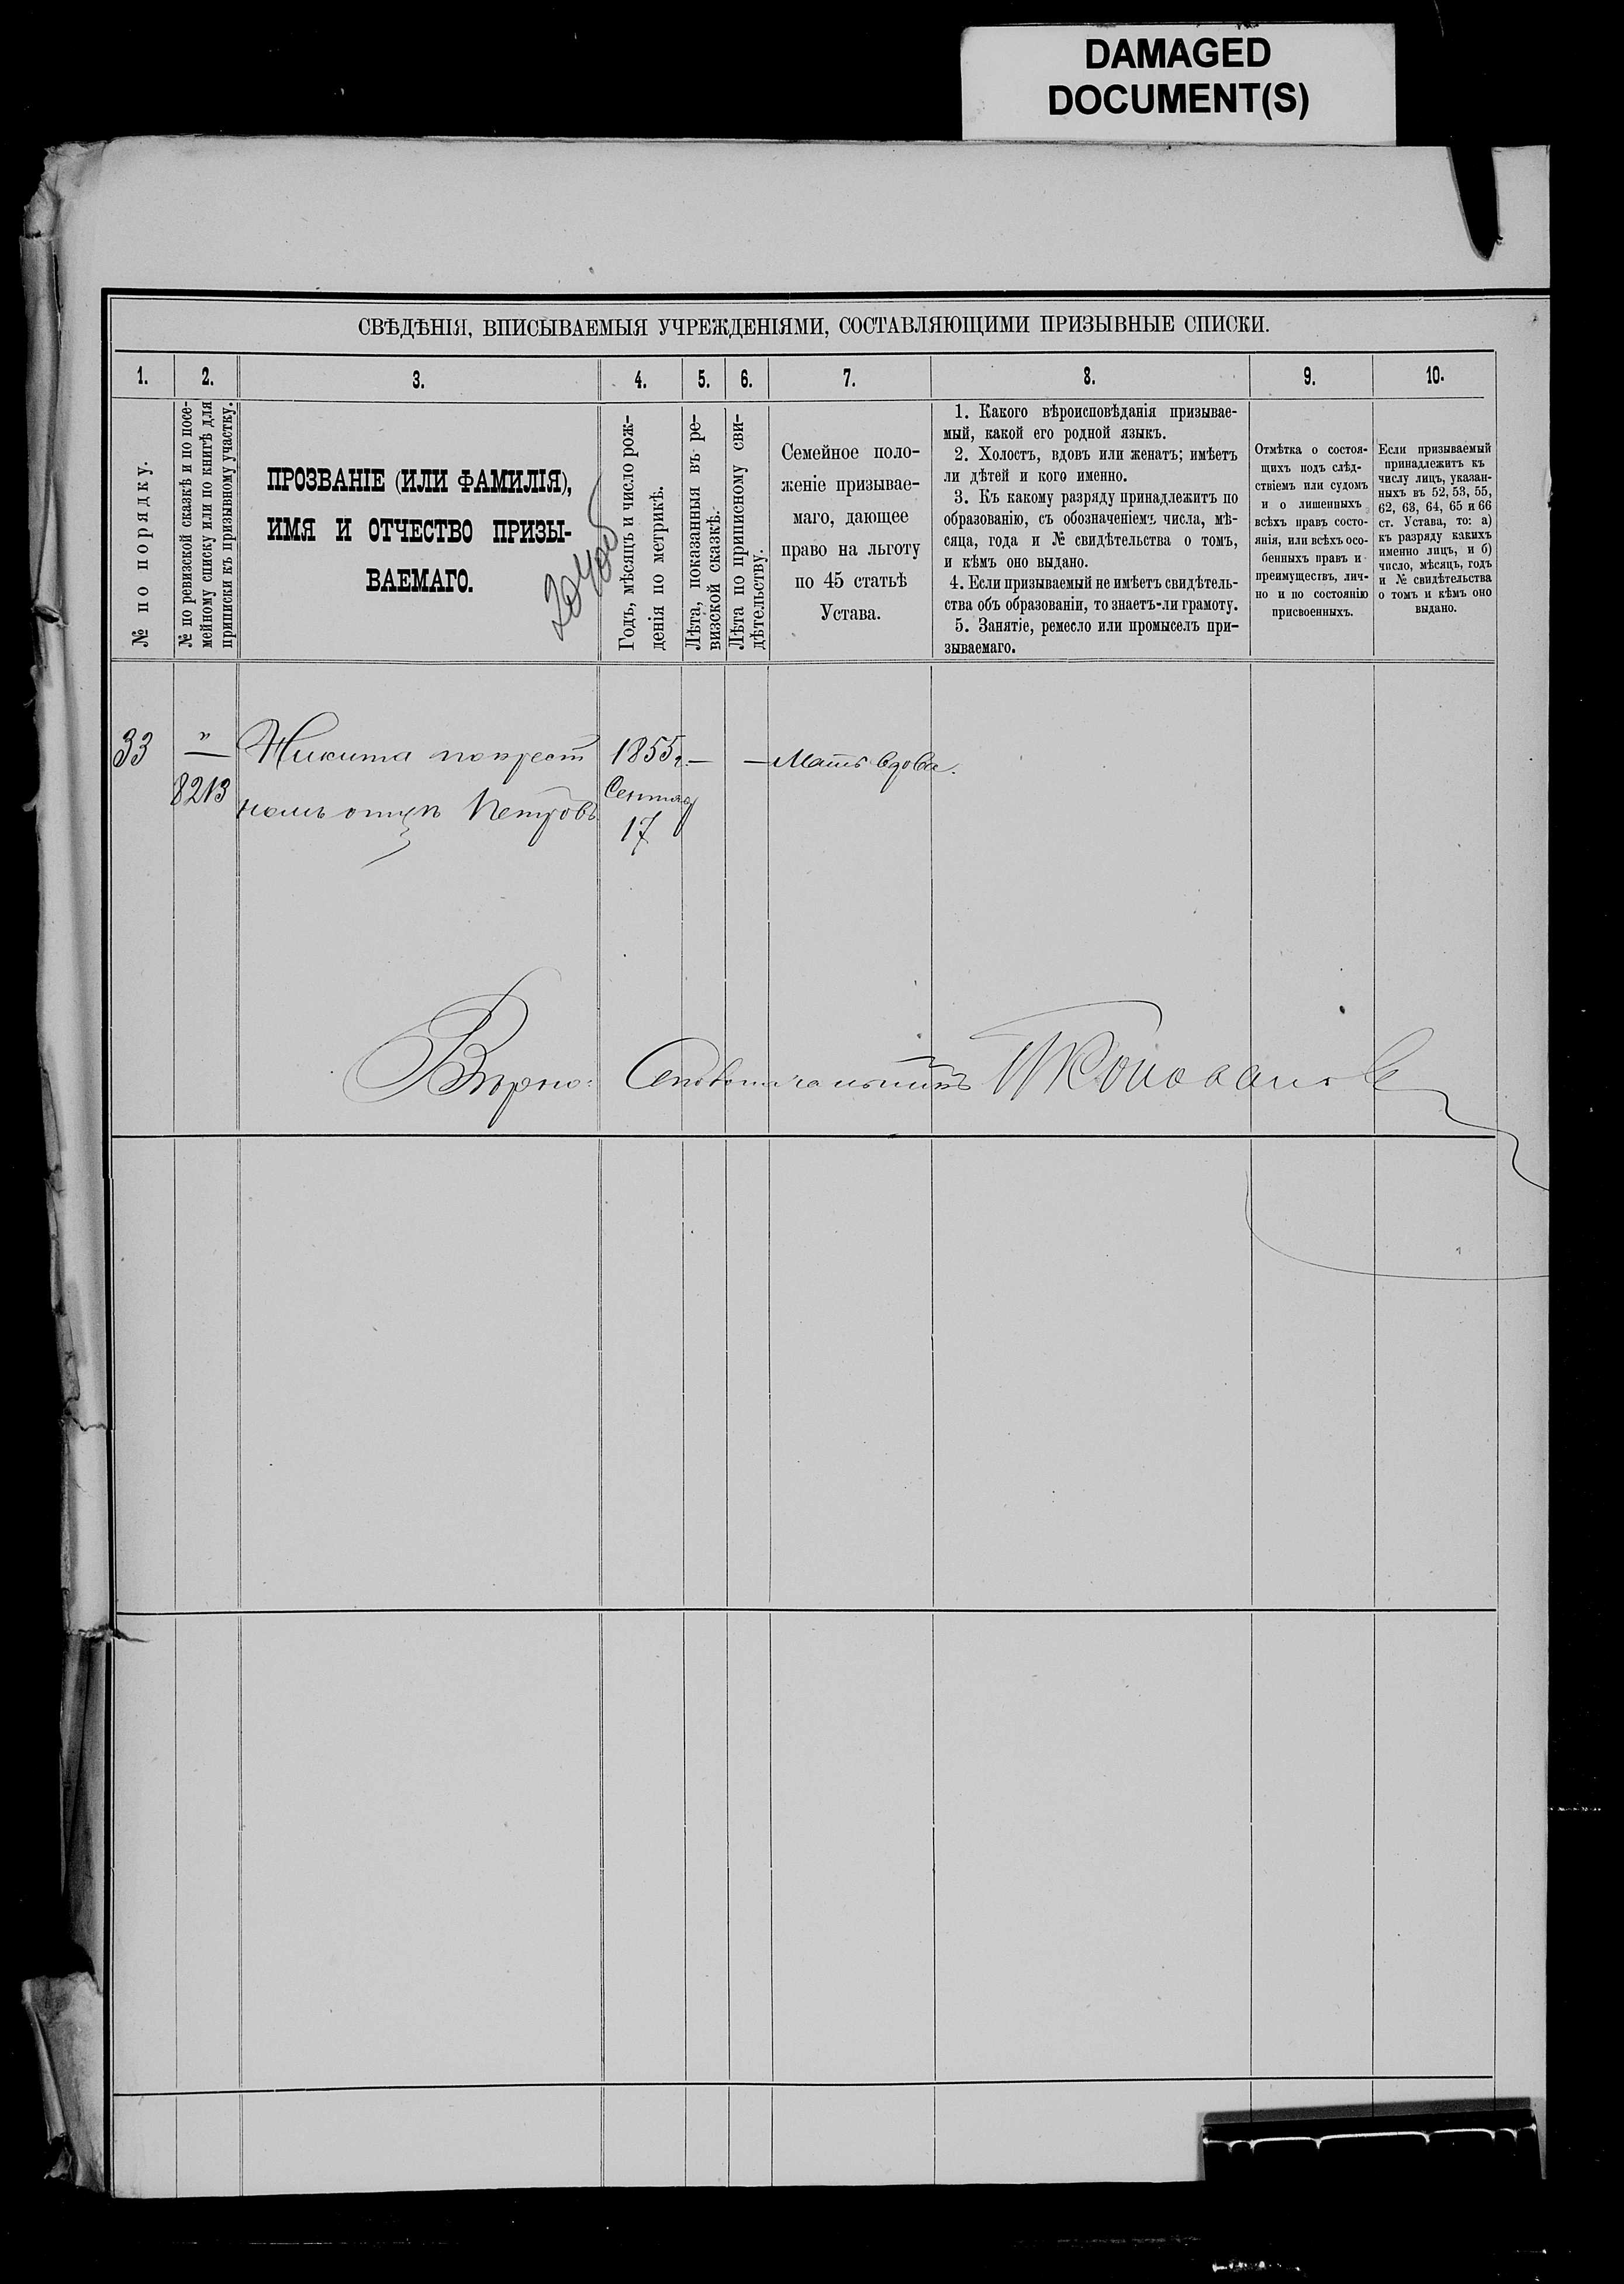 DAMAGED
DOCUMENT(S)
СВѢДѢНІЯ, ВПИСЫВАЕМЫЯ УЧРЕЖДЕНІЯМИ, СОСТАВЛЯЮЩИМИ ПРИЗЫВНЫЕ СПИСКИ.
1. 2. 3. 4. 5. 6. 7. 8. 9. 10.
№ по порядку.
№ по ревизской сказкѣ и по посе-
мейному списку или по книгѣ для
приписки къ призывному участку.
ПРОЗВАНІЕ (ИЛИ ФАМИЛІЯ),
ИМЯ И ОТЧЕСТВО ПРИЗЫ-
ВАЕМАГО.
Годъ, мѣсяцъ и число рож-
денія по метрикѣ.
Лѣта, показанныя въ ре-
визской сказкѣ.
Лѣта по приписному сви-
дѣтельству.
Семейное поло-
женіе призывае-
маго, дающее
право на льготу
по 45 статьѣ
Устава.
1. Какого вѣроисповѣданія призывае-
мый, какой его родной языкъ.
2. Холостъ, вдовъ или женатъ; имѣетъ
ли дѣтей и кого именно.
3. Къ какому разряду принадлежитъ по
образованію, съ обозначеніемъ числа, мѣ-
сяца, года и № свидѣтельства о томъ,
и кѣмъ оно выдано.
4. Если призываемый не имѣетъ свидѣтель-
ства объ образованіи, то знаетъ-ли грамоту.
5. Занятіе, ремесло или промыселъ при-
зываемаго.
Отмѣтка о состоя-
щихъ подъ слѣд-
ствіемъ или судомъ
и о лишенныхъ
всѣхъ правъ состо-
янія, или всѣхъ осо-
бенныхъ правъ и
преимуществъ, лич-
но и по состоянію
присвоенныхъ.
Если призываемый
принадлежитъ къ
числу лицъ, указан-
ныхъ въ 52, 53, 55,
62, 63, 64, 65 и 66
ст. Устава, то: а)
къ разряду какихъ
именно лицъ, и б)
число, мѣсяцъ, годъ
и № свидѣтельства
о томъ и кѣмъ оно
выдано.
33 " Никита по крест 1855 г. — — Мать вдова.
8213 номъ отцѣ Петровъ Сентяб
17
Вѣрно: